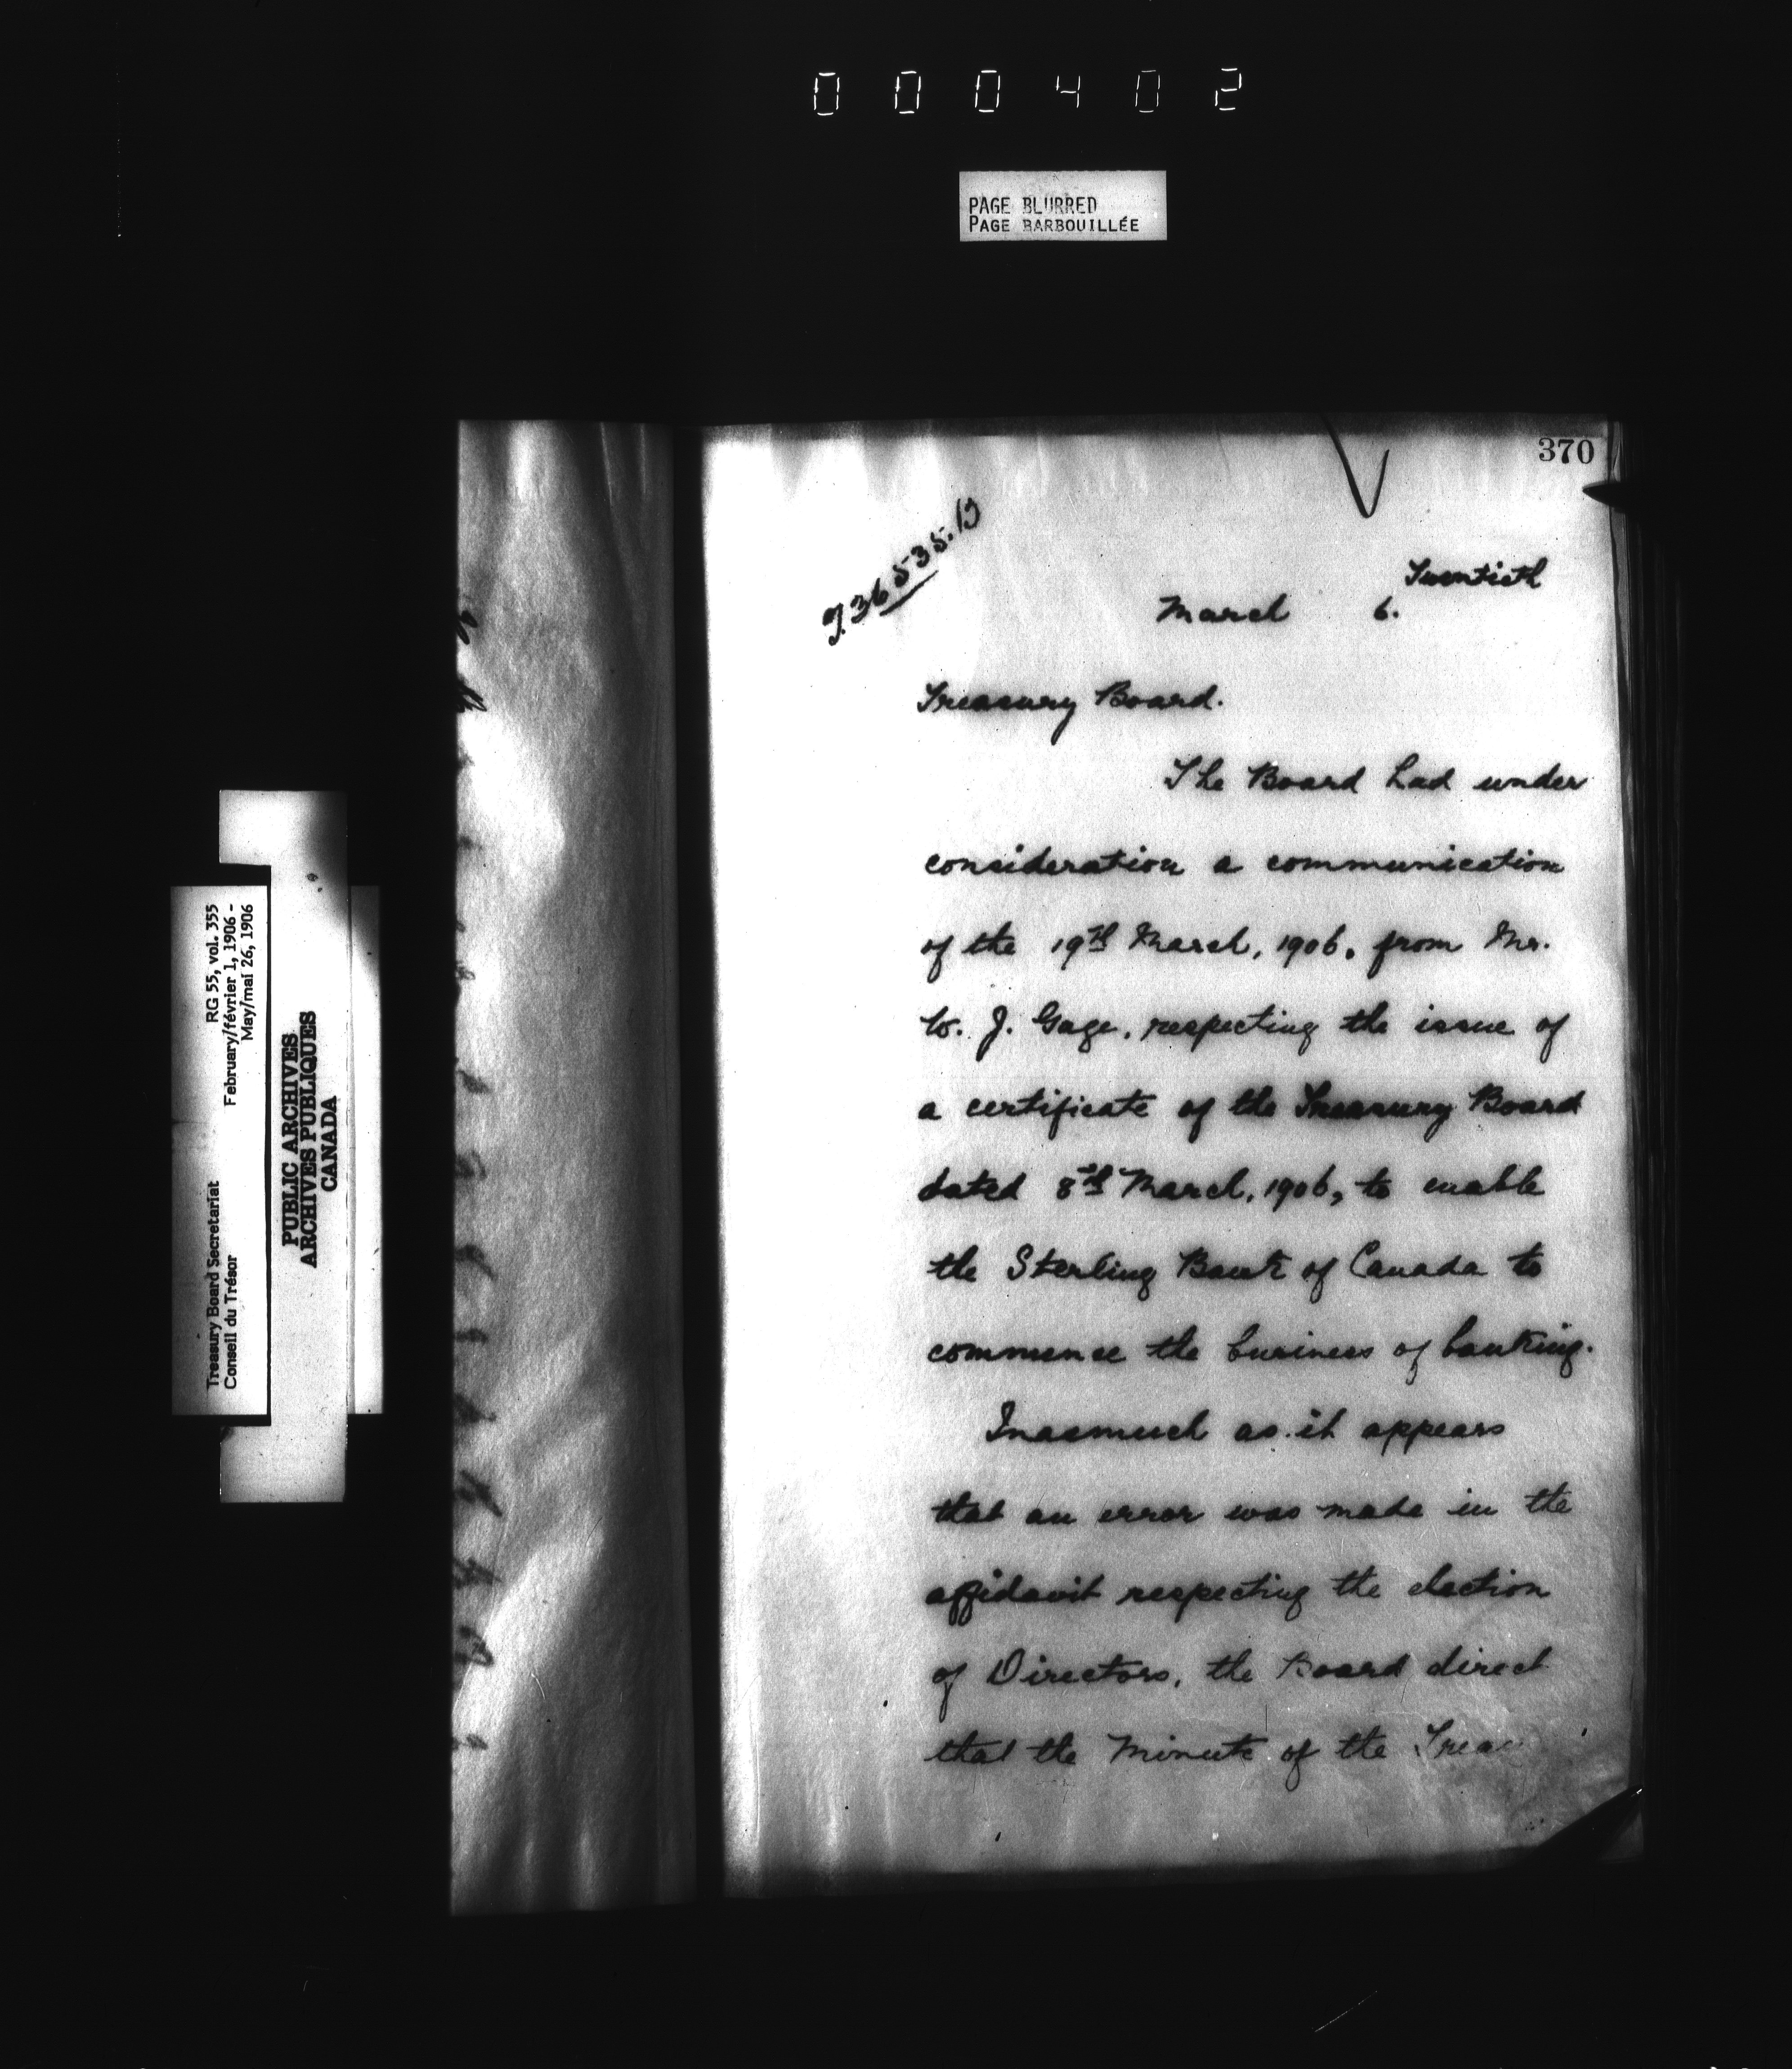 000402
PAGE BLURRED
PAGE BARBOUILLÉE
370
Twentieth
March 6.
Treasury Board.
The Board had under
consideration a communication
of the 19th March, 1906, from Mr.
W. J. Gage, respecting the issue of
a certificate of the Treasury Board
dated 8th March, 1906, to enable
the Sterling Bank of Canada to
commence the business of banking.
Inasmuch as it appears
that an error was made in the
affidavit respecting the election
of Directors, the Board direct
that the Minute of the Treas
Treasury Board Secretariat RG 55, vol. 355
Conseil du Trésor February/février 1, 1906 -
May/mai 26, 1906
PUBLIC ARCHIVES
ARCHIVES PUBLIQUES
CANADA